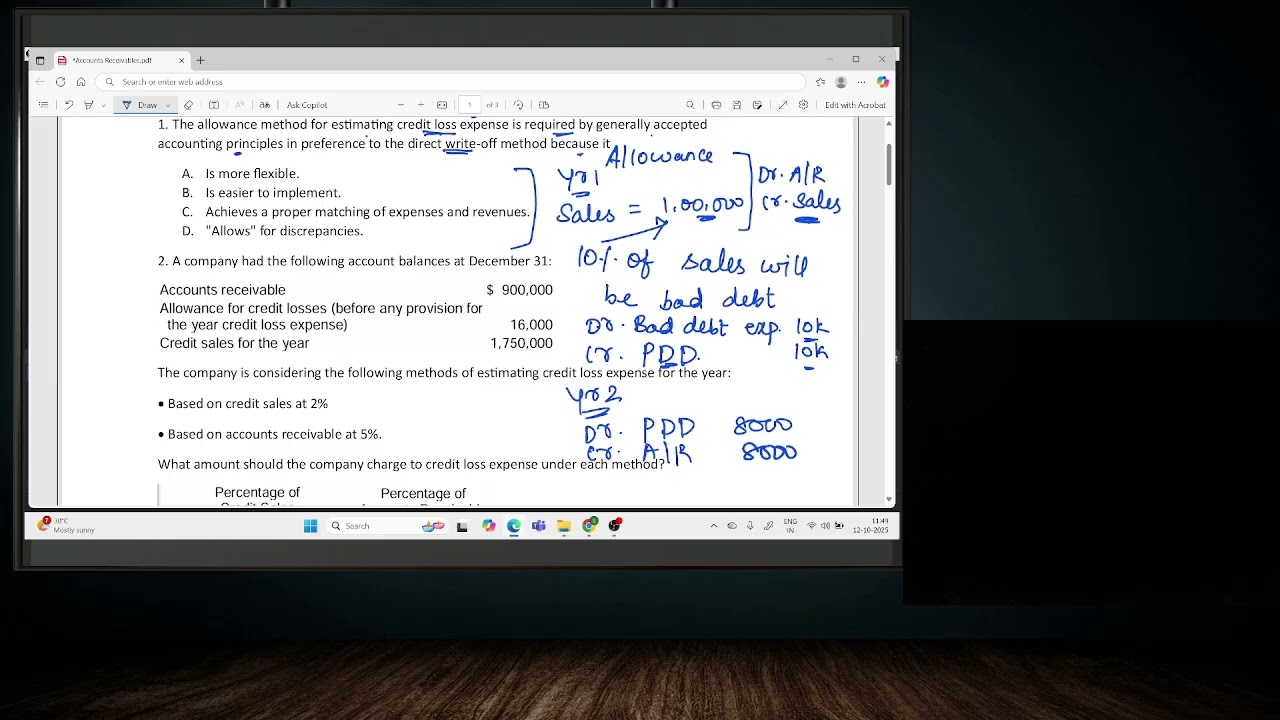 *Accounts Receivables.pdf
Search or enter web address
Draw
Ask Copilot
1
of 3
Edit with Acrobat
1. The allowance method for estimating credit loss expense is required by generally accepted
accounting principles in preference to the direct write-off method because it
A. Is more flexible.
B. Is easier to implement.
C. Achieves a proper matching of expenses and revenues.
D. "Allows" for discrepancies.
Allowance
Yr1
Sales = 1,00,000
Dr. A/R
Cr. Sales
10% of sales will
be bad debt
Dr. Bad debt exp. 10k
Cr. PDD. 10k
2. A company had the following account balances at December 31:
Accounts receivable $ 900,000
Allowance for credit losses (before any provision for
the year credit loss expense) 16,000
Credit sales for the year 1,750,000
The company is considering the following methods of estimating credit loss expense for the year:
• Based on credit sales at 2%
• Based on accounts receivable at 5%.
Yr2
Dr. PDD 8000
Cr. A/R 8000
What amount should the company charge to credit loss expense under each method?
Percentage of Percentage of
31°C
Mostly sunny
Search
ENG
IN
11:49
12-10-2025